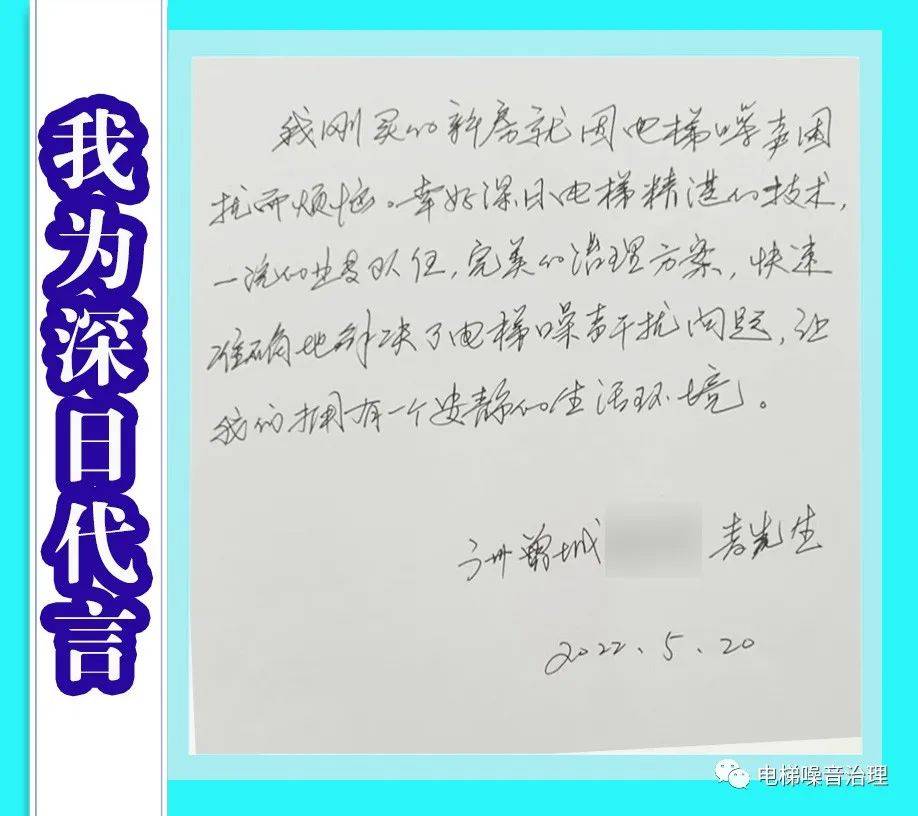 我为深日代言
我刚买的新房就因电梯噪声困
扰而烦恼。幸好深日电梯精湛的技术,
一流的专责队伍,完美的治理方案,快速
准确地解决了电梯噪声干扰问题,让
我们拥有一个安静的生活环境。
广州增城 先生
2022.5.20
电梯噪音治理